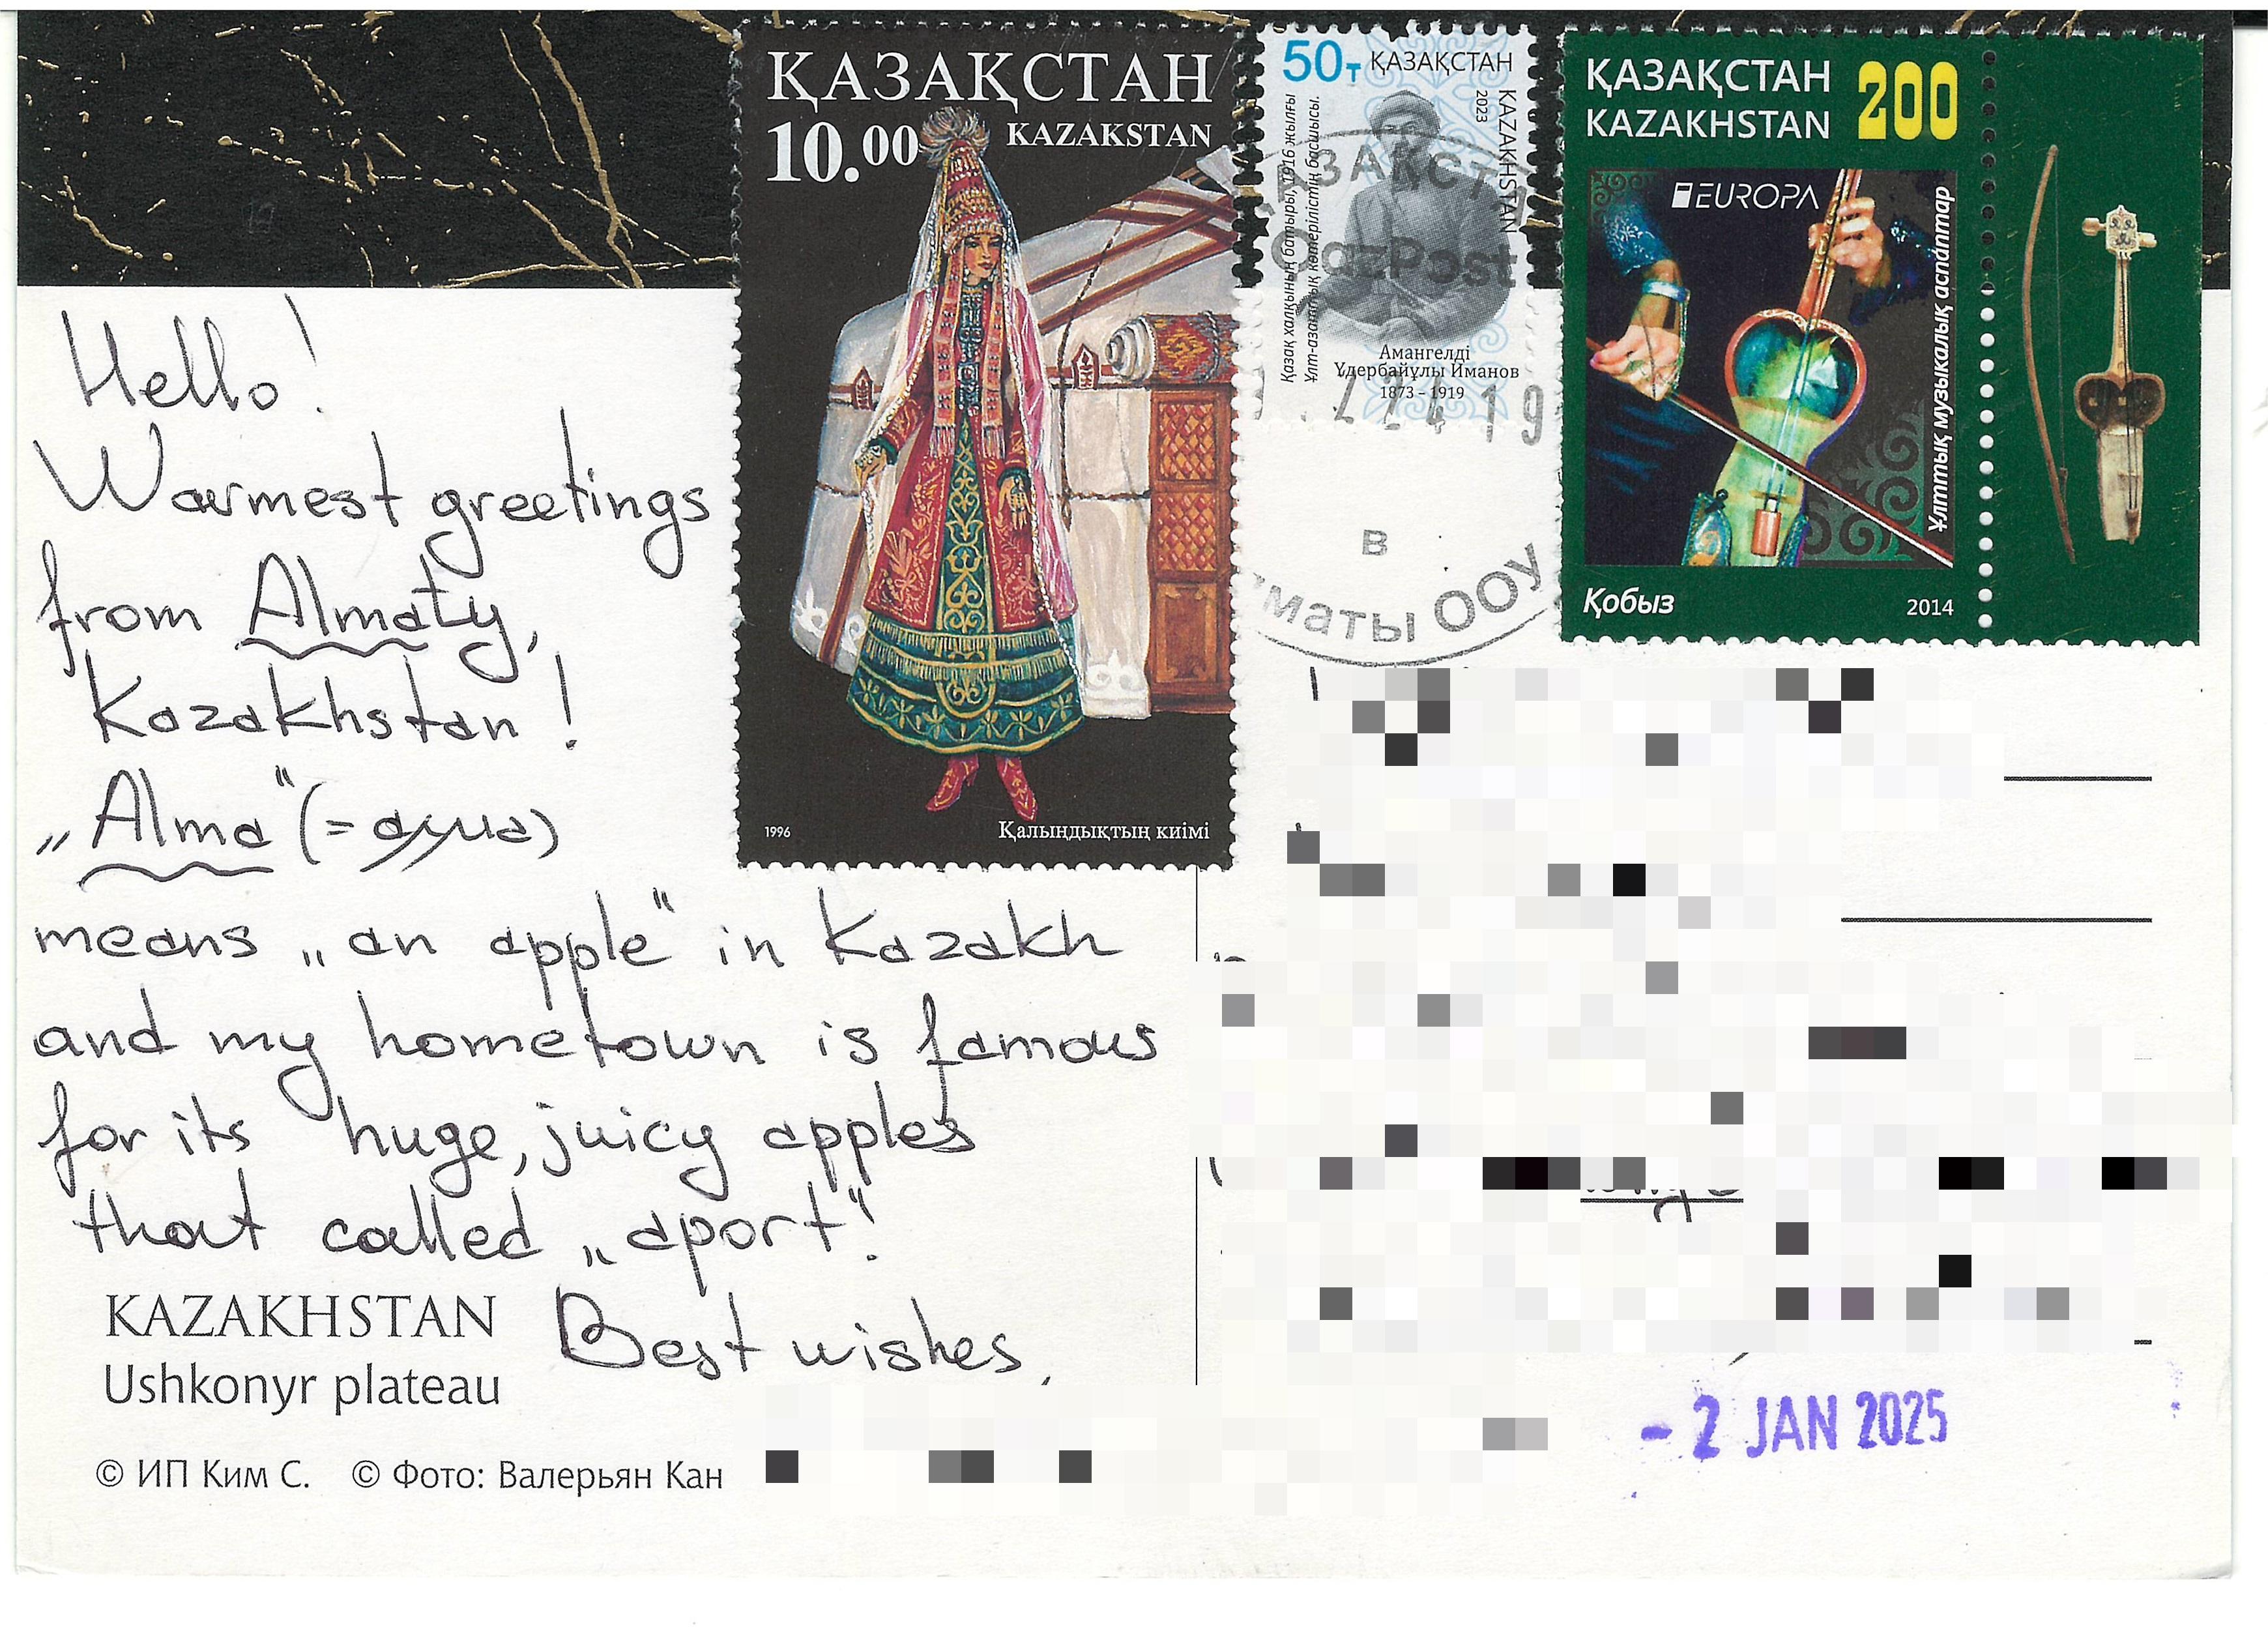 ҚАЗАҚСТАН
10.00
KAZAKSTAN
1996
Қалыңдықтың киімі
50₸ ҚАЗАҚСТАН
KAZAKHSTAN
2023
Қазақ халқының батыры, 1916 жылғы
ұлт-азаттық көтерілістің басшысы.
Амангелді
Үдербайұлы Иманов
1873 – 1919
ҚАЗАҚСТАН
KAZAKHSTAN
200
EUROPA
Ұлттық музыкалық аспаптар
Қобыз
2014
QazPost
19
В
ООУ
Hello!
Warmest greetings
from Almaty,
Kazakhstan!
„Alma“ (= алма)
means „an apple“ in Kazakh
and my hometown is famous
for its huge, juicy apples
that called „aport“!
Best wishes,
KAZAKHSTAN
Ushkonyr plateau
© ИП Ким С. © Фото: Валерьян Кан
- 2 JAN 2025